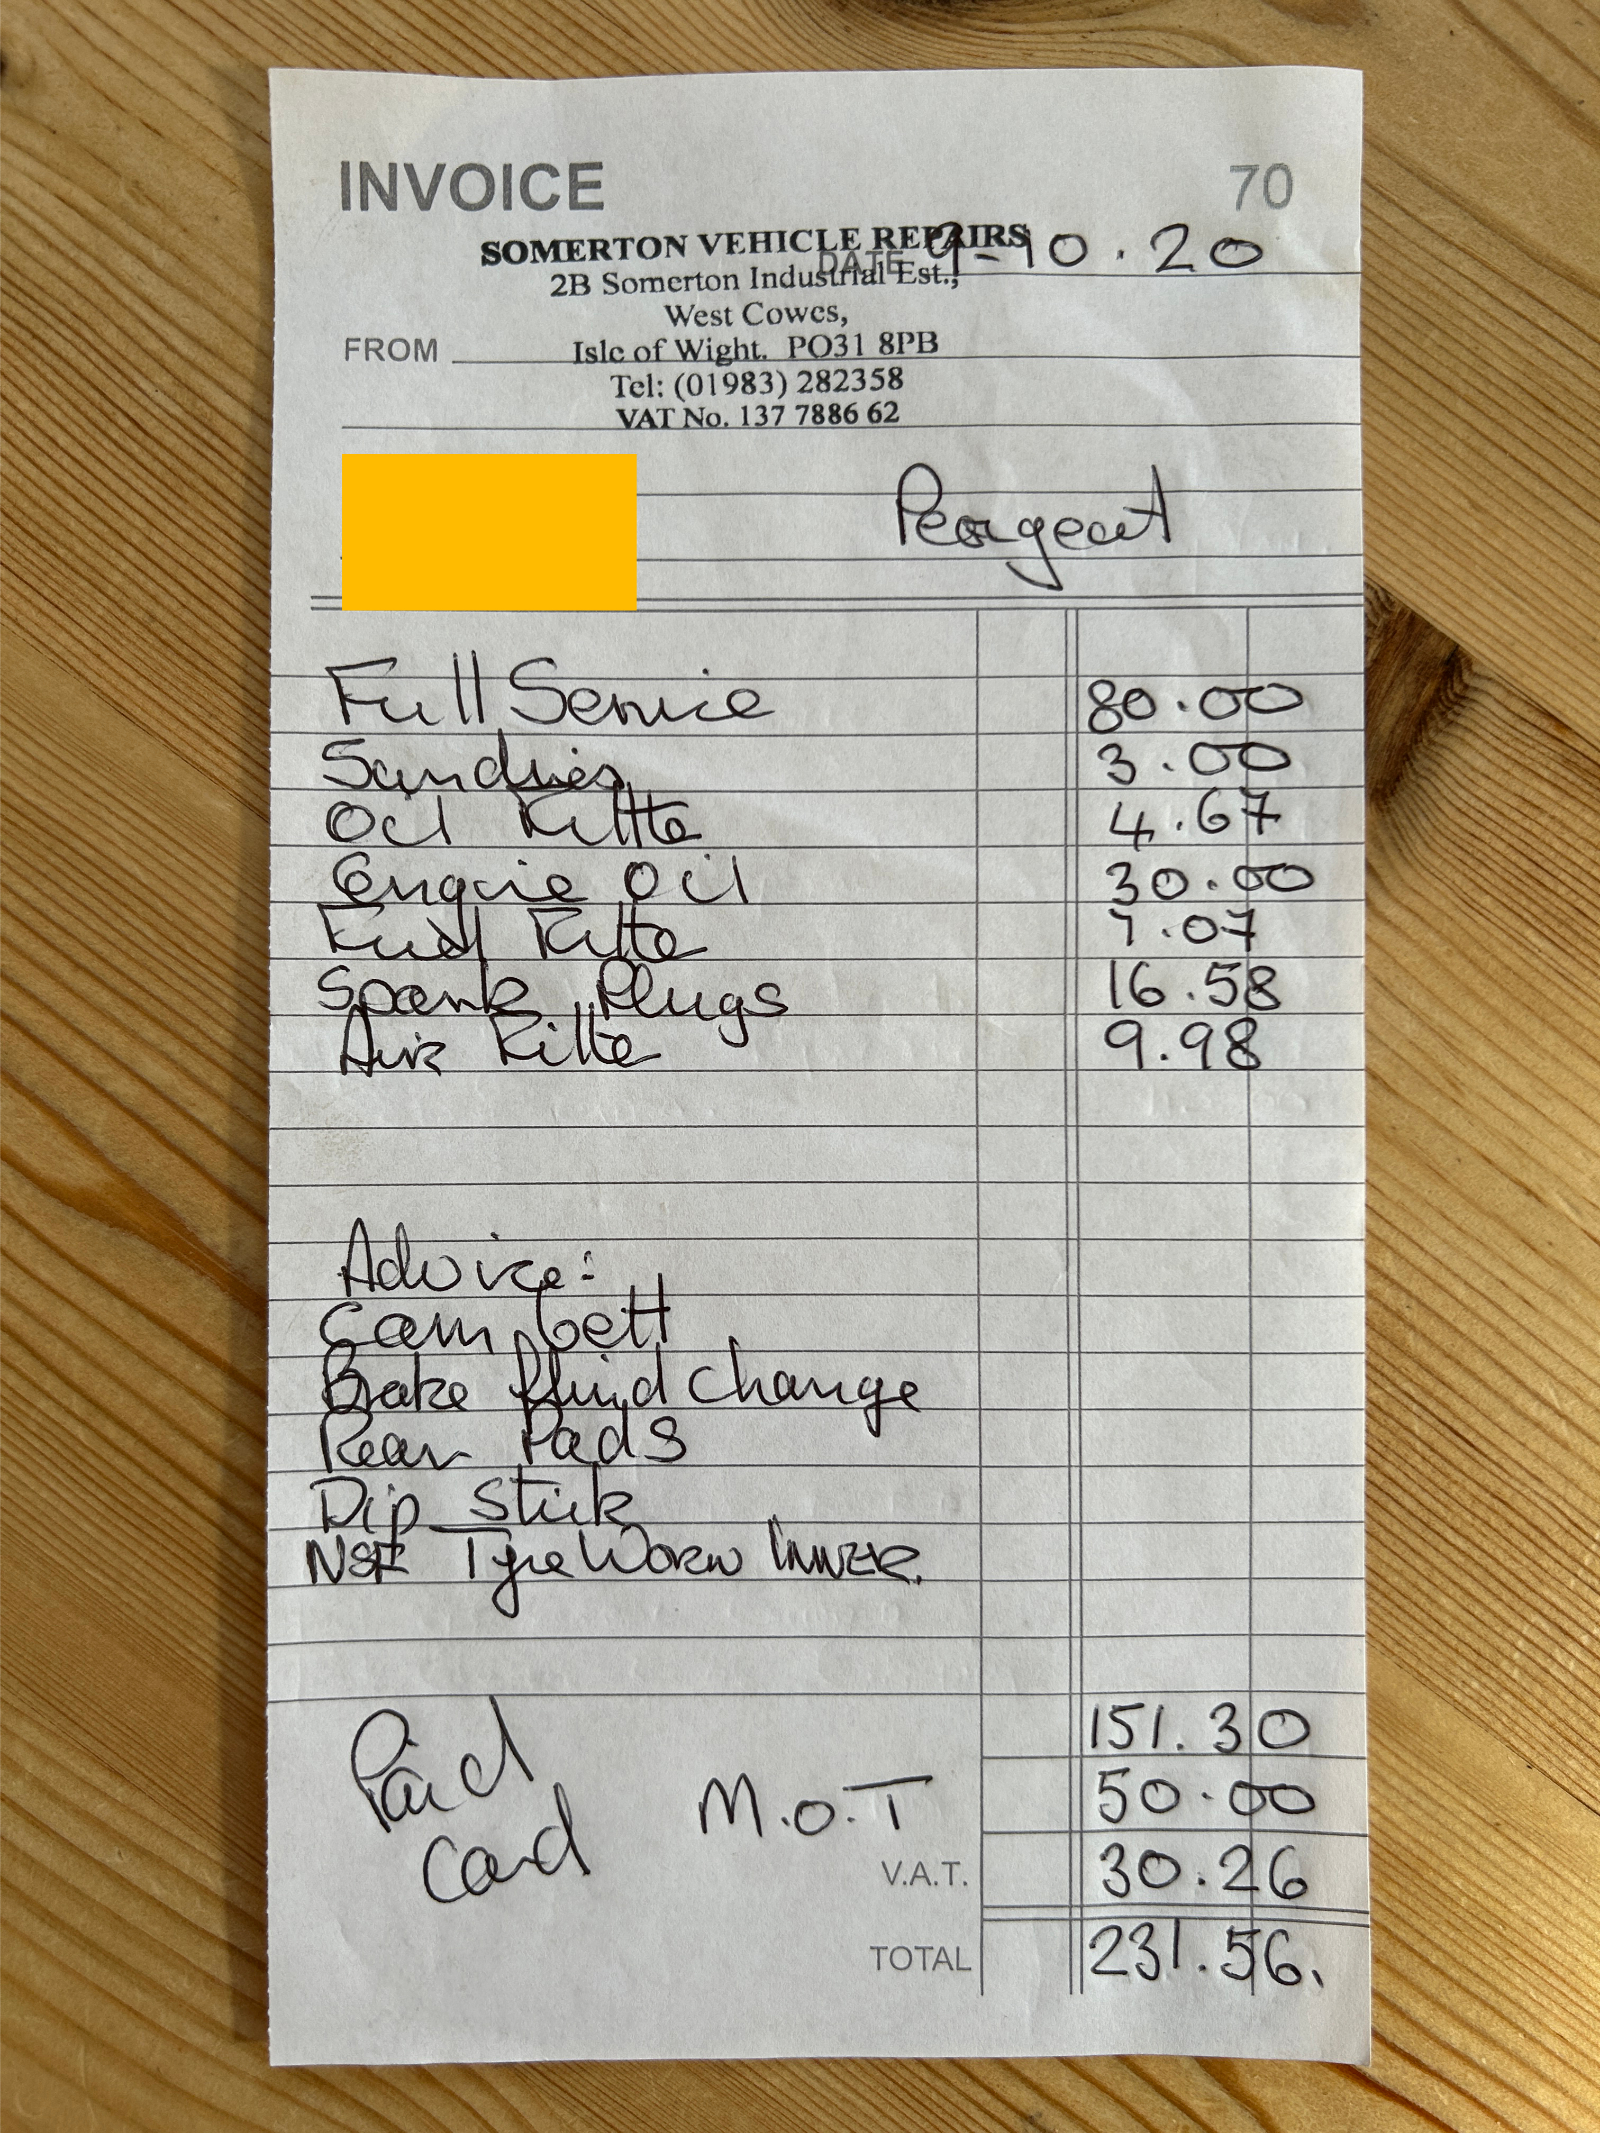 INVOICE 70
SOMERTON VEHICLE REPAIRS
DATE 9-10.20
2B Somerton Industrial Est.,
West Cowes,
FROM Isle of Wight. PO31 8PB
Tel: (01983) 282358
VAT No. 137 7886 62
Peorgeot
Full Service 80.00
Sundries 3.00
Oil Filter 4.67
Engine Oil 30.00
Fuel Filter 7.07
Spark Plugs 16.58
Air Filter 9.98
Advice:-
Cam belt
Brake fluid change
Rear Pads
Dip Stick
NSF Tyre Worn Inner.
151.30
Paid M.O.T 50.00
Card V.A.T. 30.26
TOTAL 231.56.